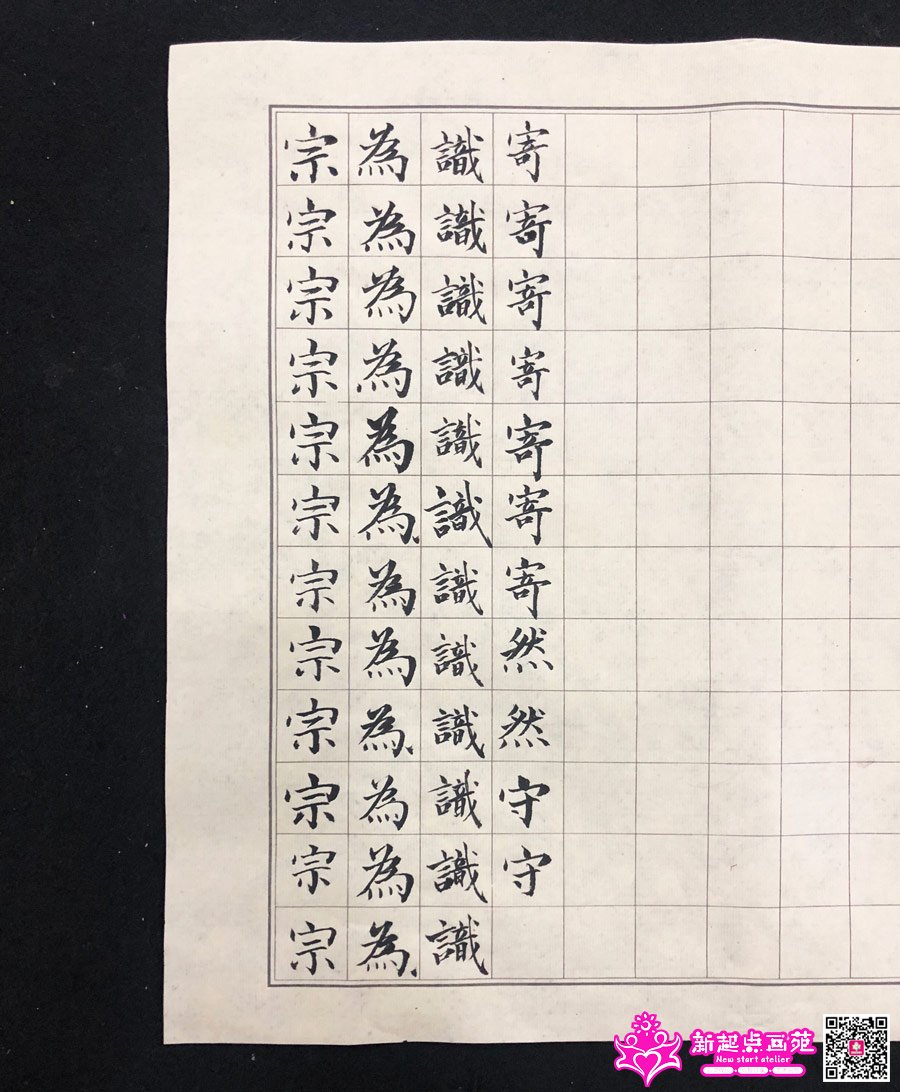 宗宗宗宗宗宗宗宗宗宗宗宗
為為為為為為為為為為為為
識識識識識識識識識識識識
寄寄寄寄寄寄寄然然守守
新起点画苑
New start atelier